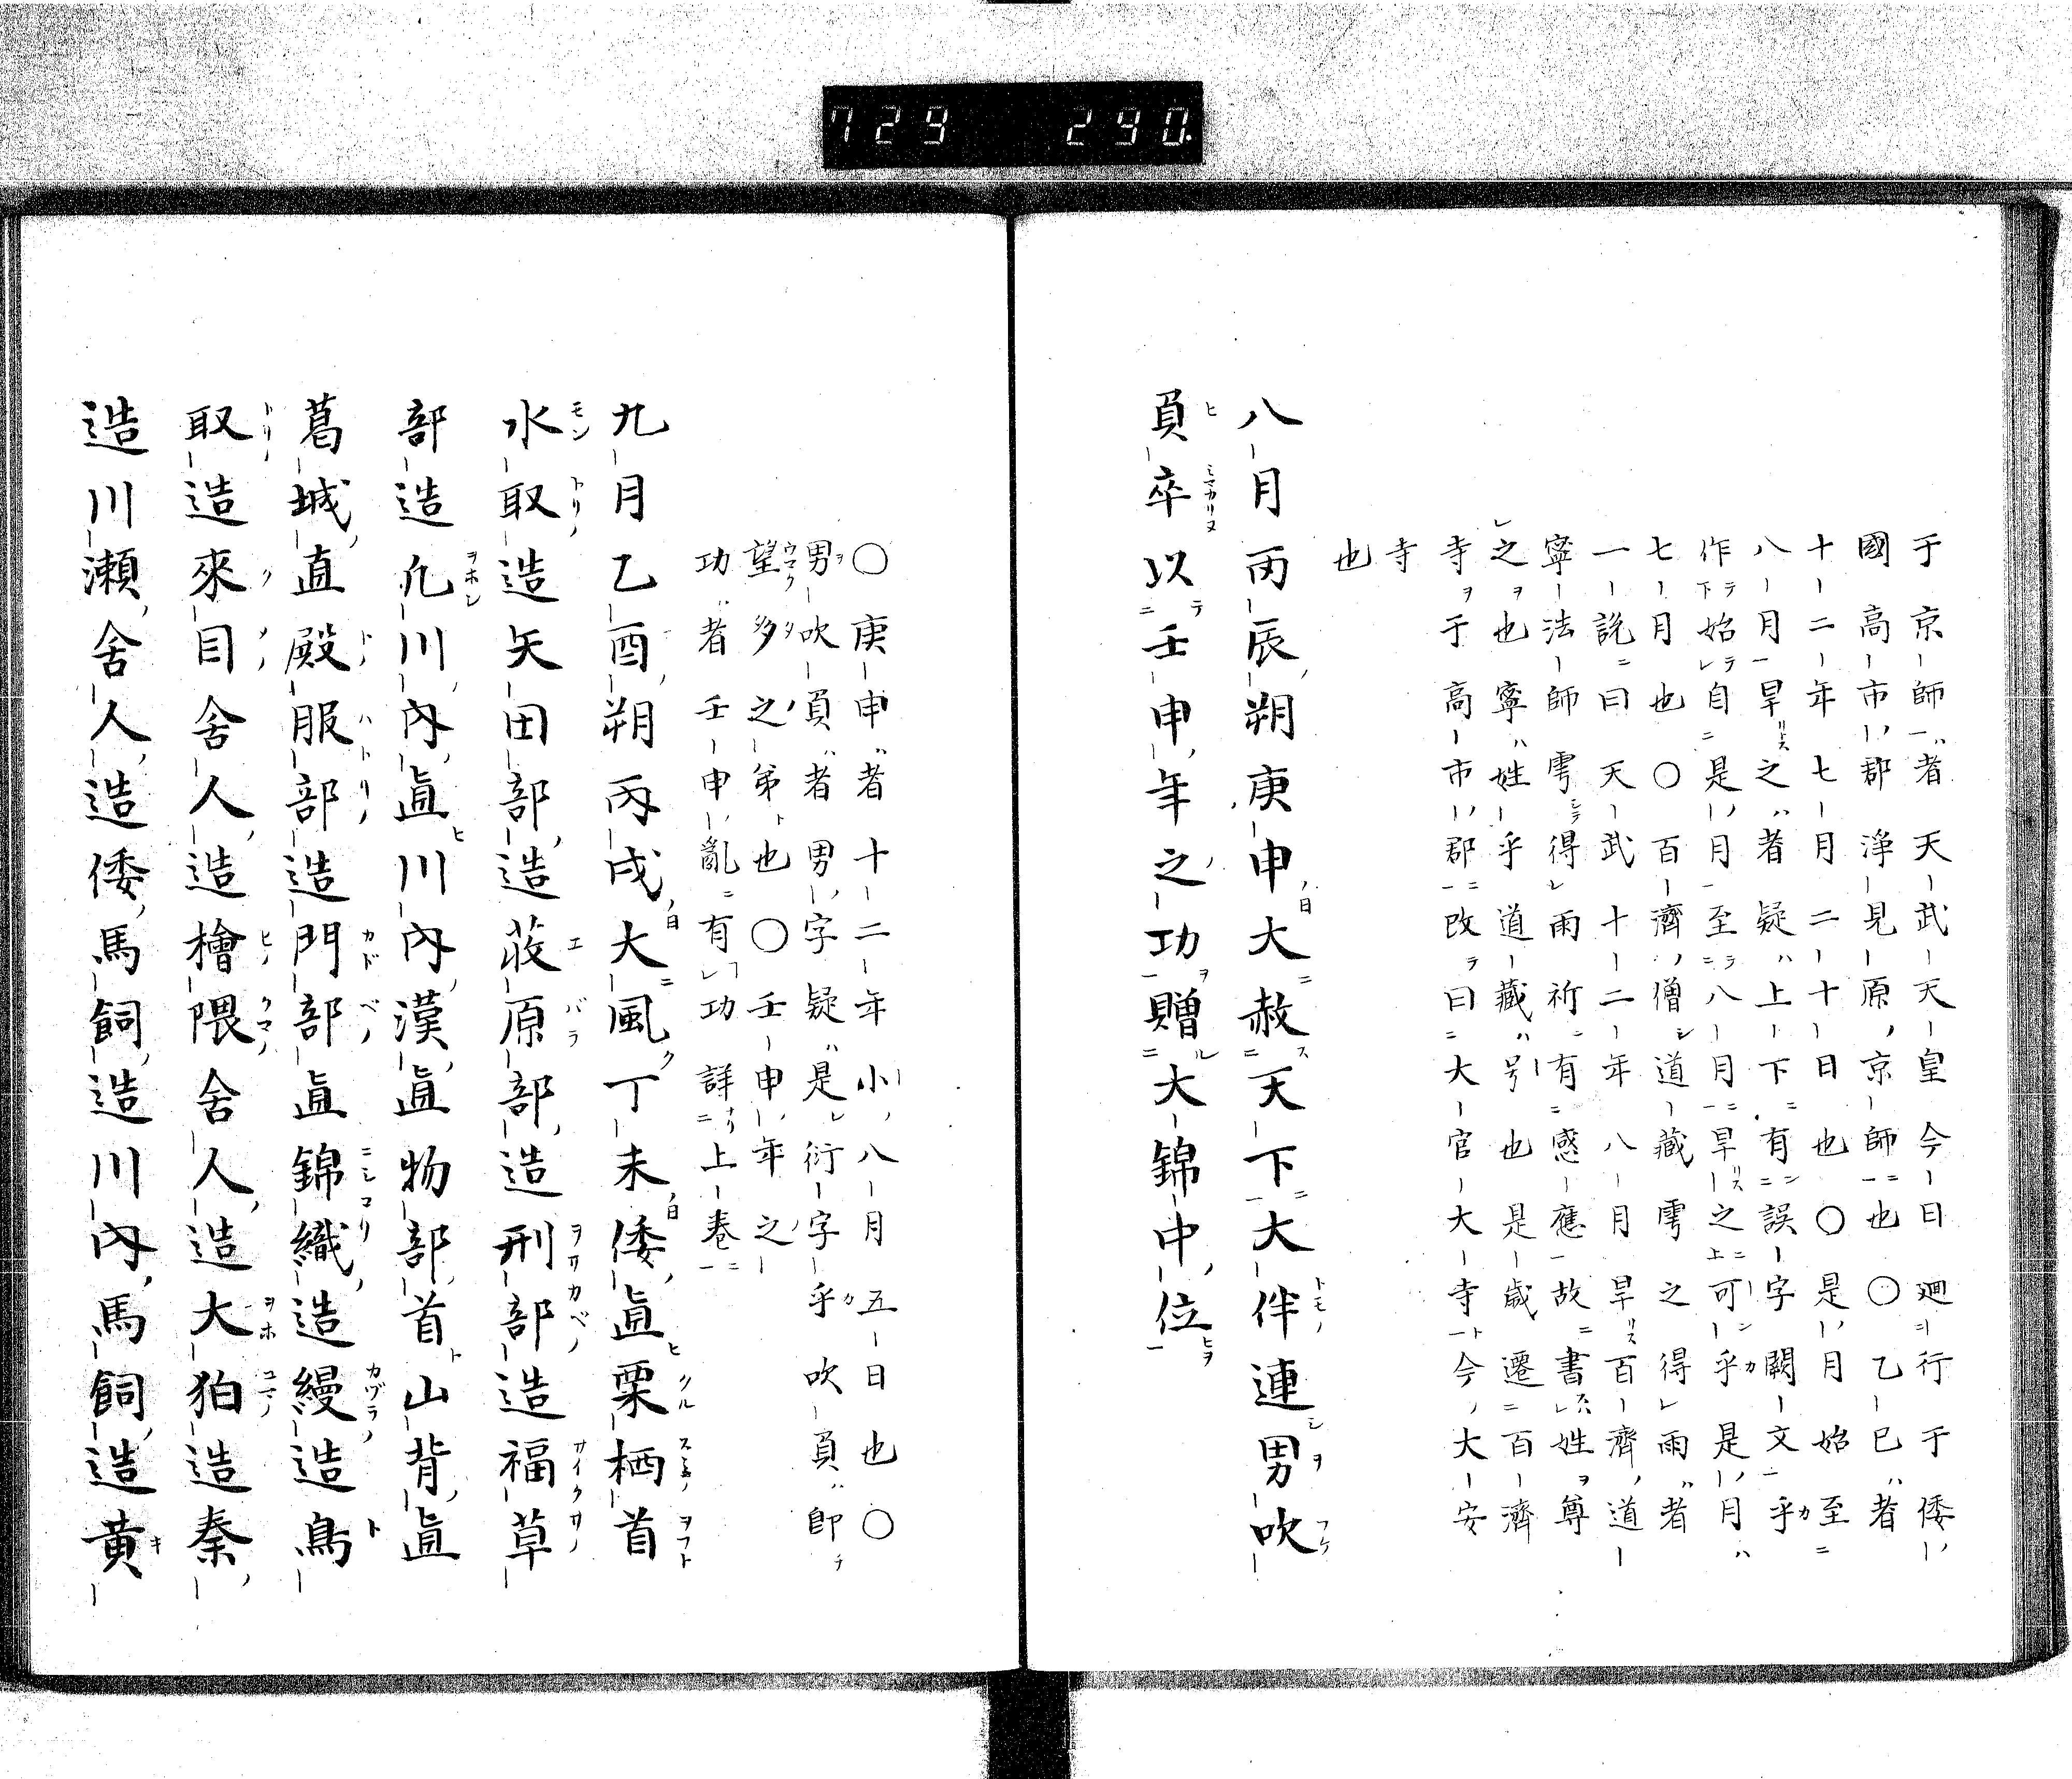 729 290
于京師者天武天皇今日廻行于倭
國高市郡淨見原京師也〇乙巳者
十二年七月二十日也〇是月始至
八月旱之者疑上下有誤字闕文乎
作始自是月至八月旱之可乎是月
七月也〇百濟僧道藏雩之得雨者
一說曰天武十二年八月旱百濟道
寧法師雩得雨祈有感應故書姓尊
之也寧姓乎道藏号也是歲遷百濟
寺于高市郡改曰大官大寺今大安
寺
也
八月丙辰朔庚申大赦天下大伴連男吹
負卒以壬申年之功贈大錦中位
〇庚申者十二年小八月五日也〇
男吹負者男字疑是衍字乎吹負即
望多之弟也〇壬申年之
功者壬申亂有功詳上卷
九月乙酉朔丙戌大風丁未倭直栗栖首
水取造矢田部造蔱原部造刑部造福草
部造凡川內直川內漢直物部首山背直
葛城直殿服部造門部直錦織造縵造鳥
取造來目舍人造檜隈舍人造大狛造秦
造川瀨舍人造倭馬飼造川內馬飼造黃